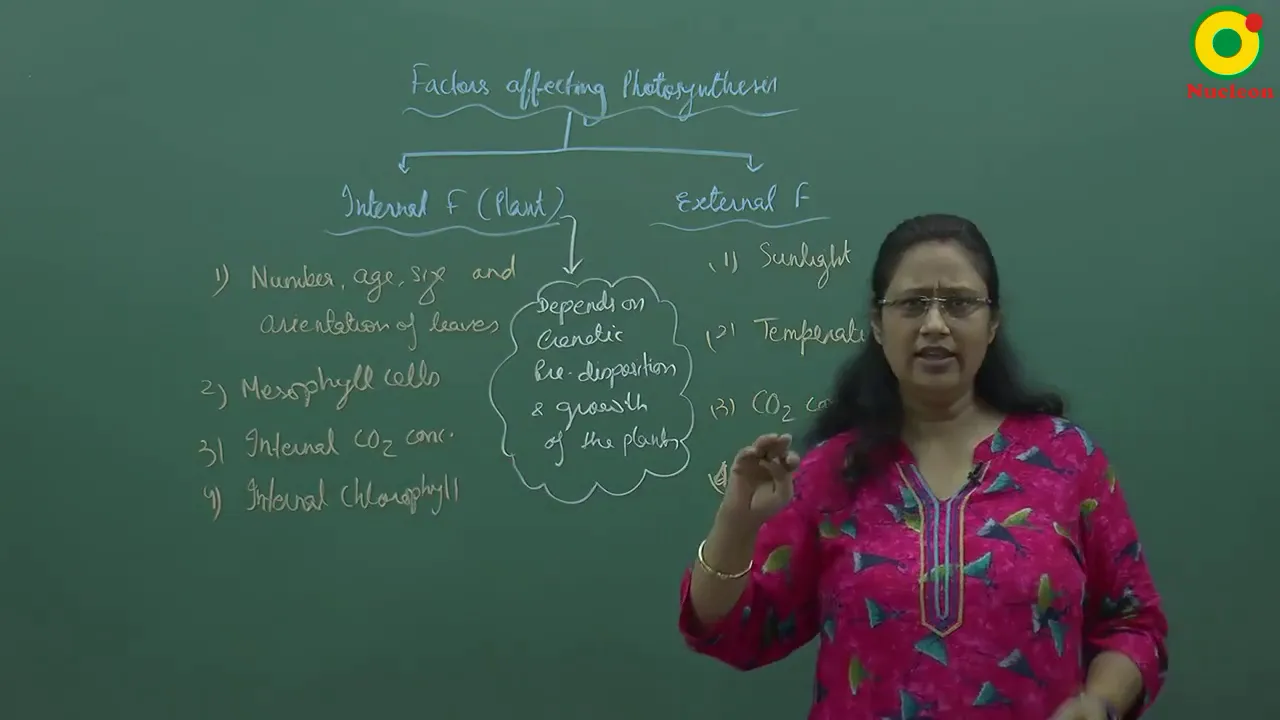 Nucleon
Factors affecting Photosynthesis
Internal F (Plant)
External F
1) Number, age, size and
orientation of leaves
2) Mesophyll cells
3) Internal CO2 conc.
4) Internal Chlorophyll
Depends on
Genetic
Pre-disposition
& growth
of the plants
(1) Sunlight
(2) Temperatu
(3) CO2 co
(4)